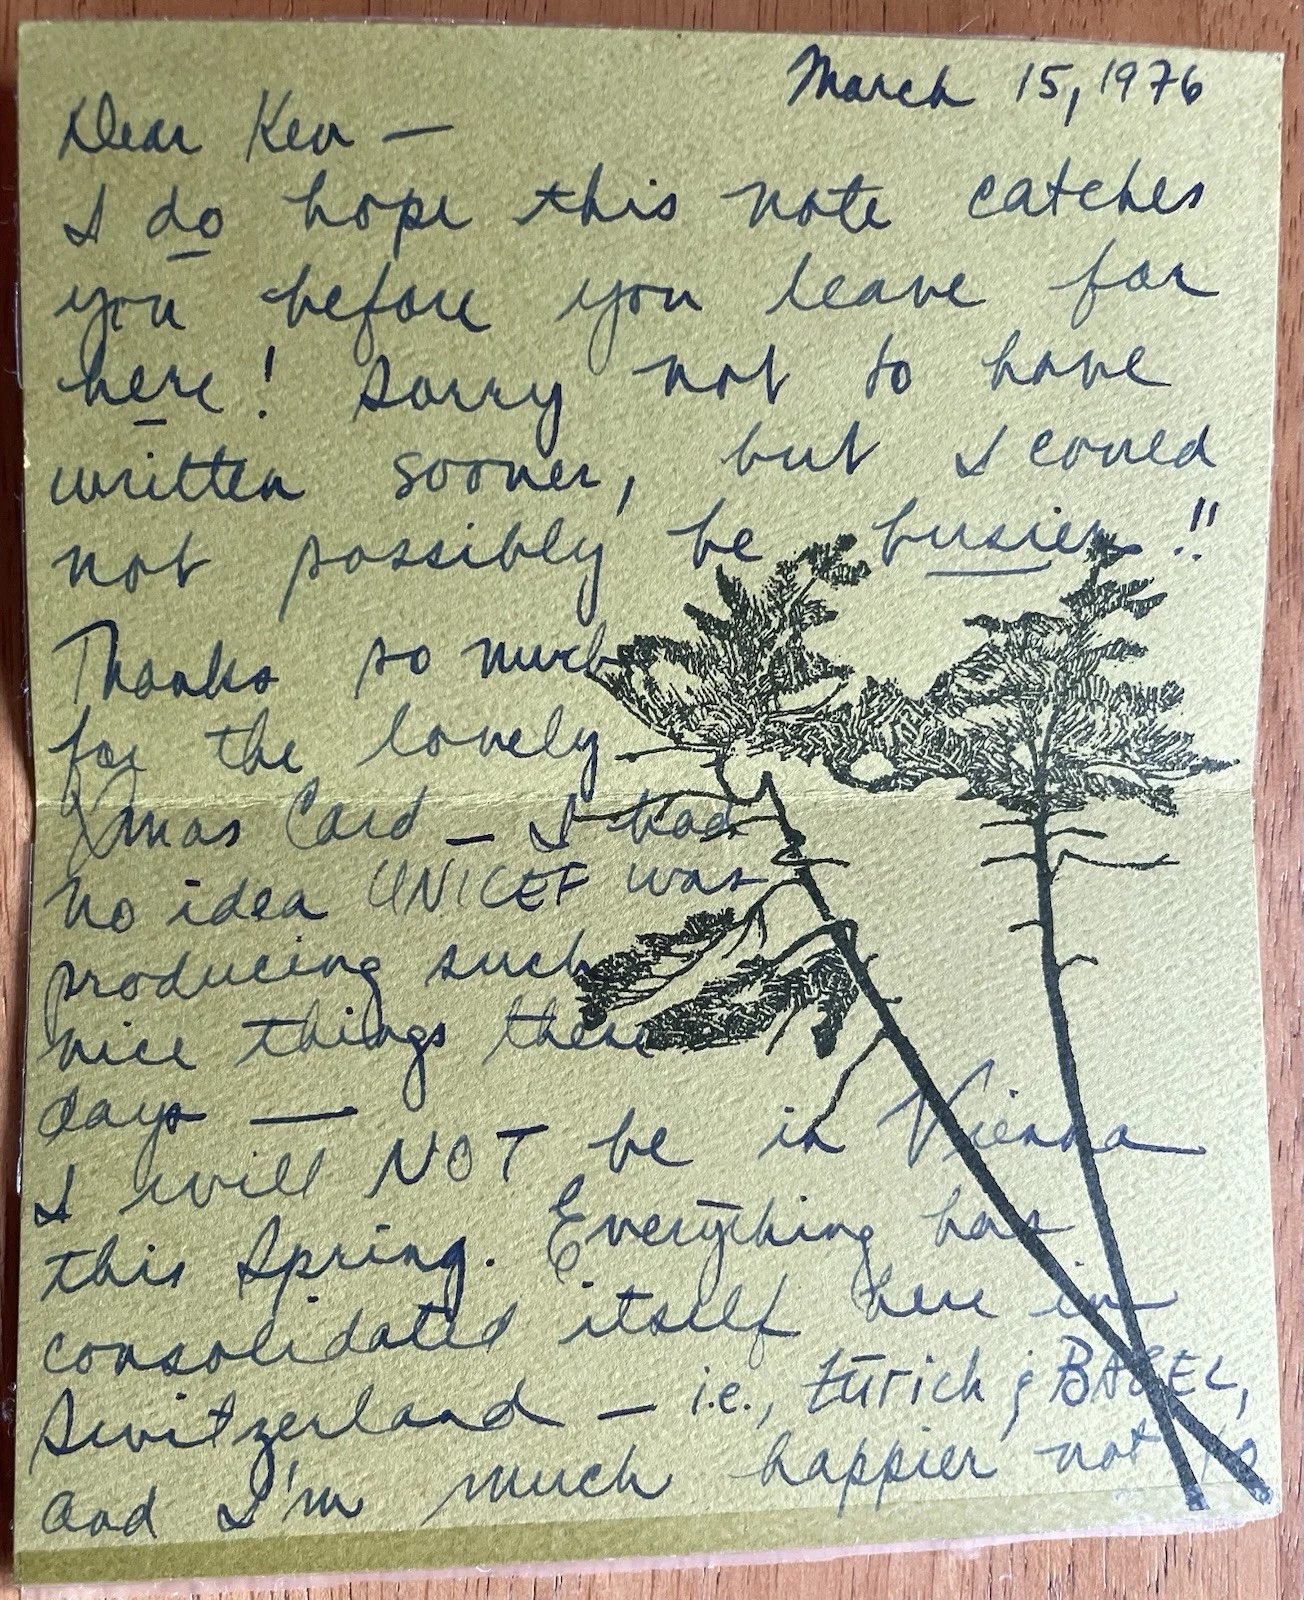 March 15, 1976
Dear Ken —
I do hope this note catches
you before you leave for
here! Sorry not to have
written sooner, but I could
not possibly be busier!!
Thanks so much
for the lovely
Xmas Card — I had
no idea UNICEF was
producing such
nice things these
days —
I will NOT be in Vienna
this Spring. Everything has
consolidated itself here in
Switzerland — i.e., Zürich & BASEL,
and I'm much happier not to